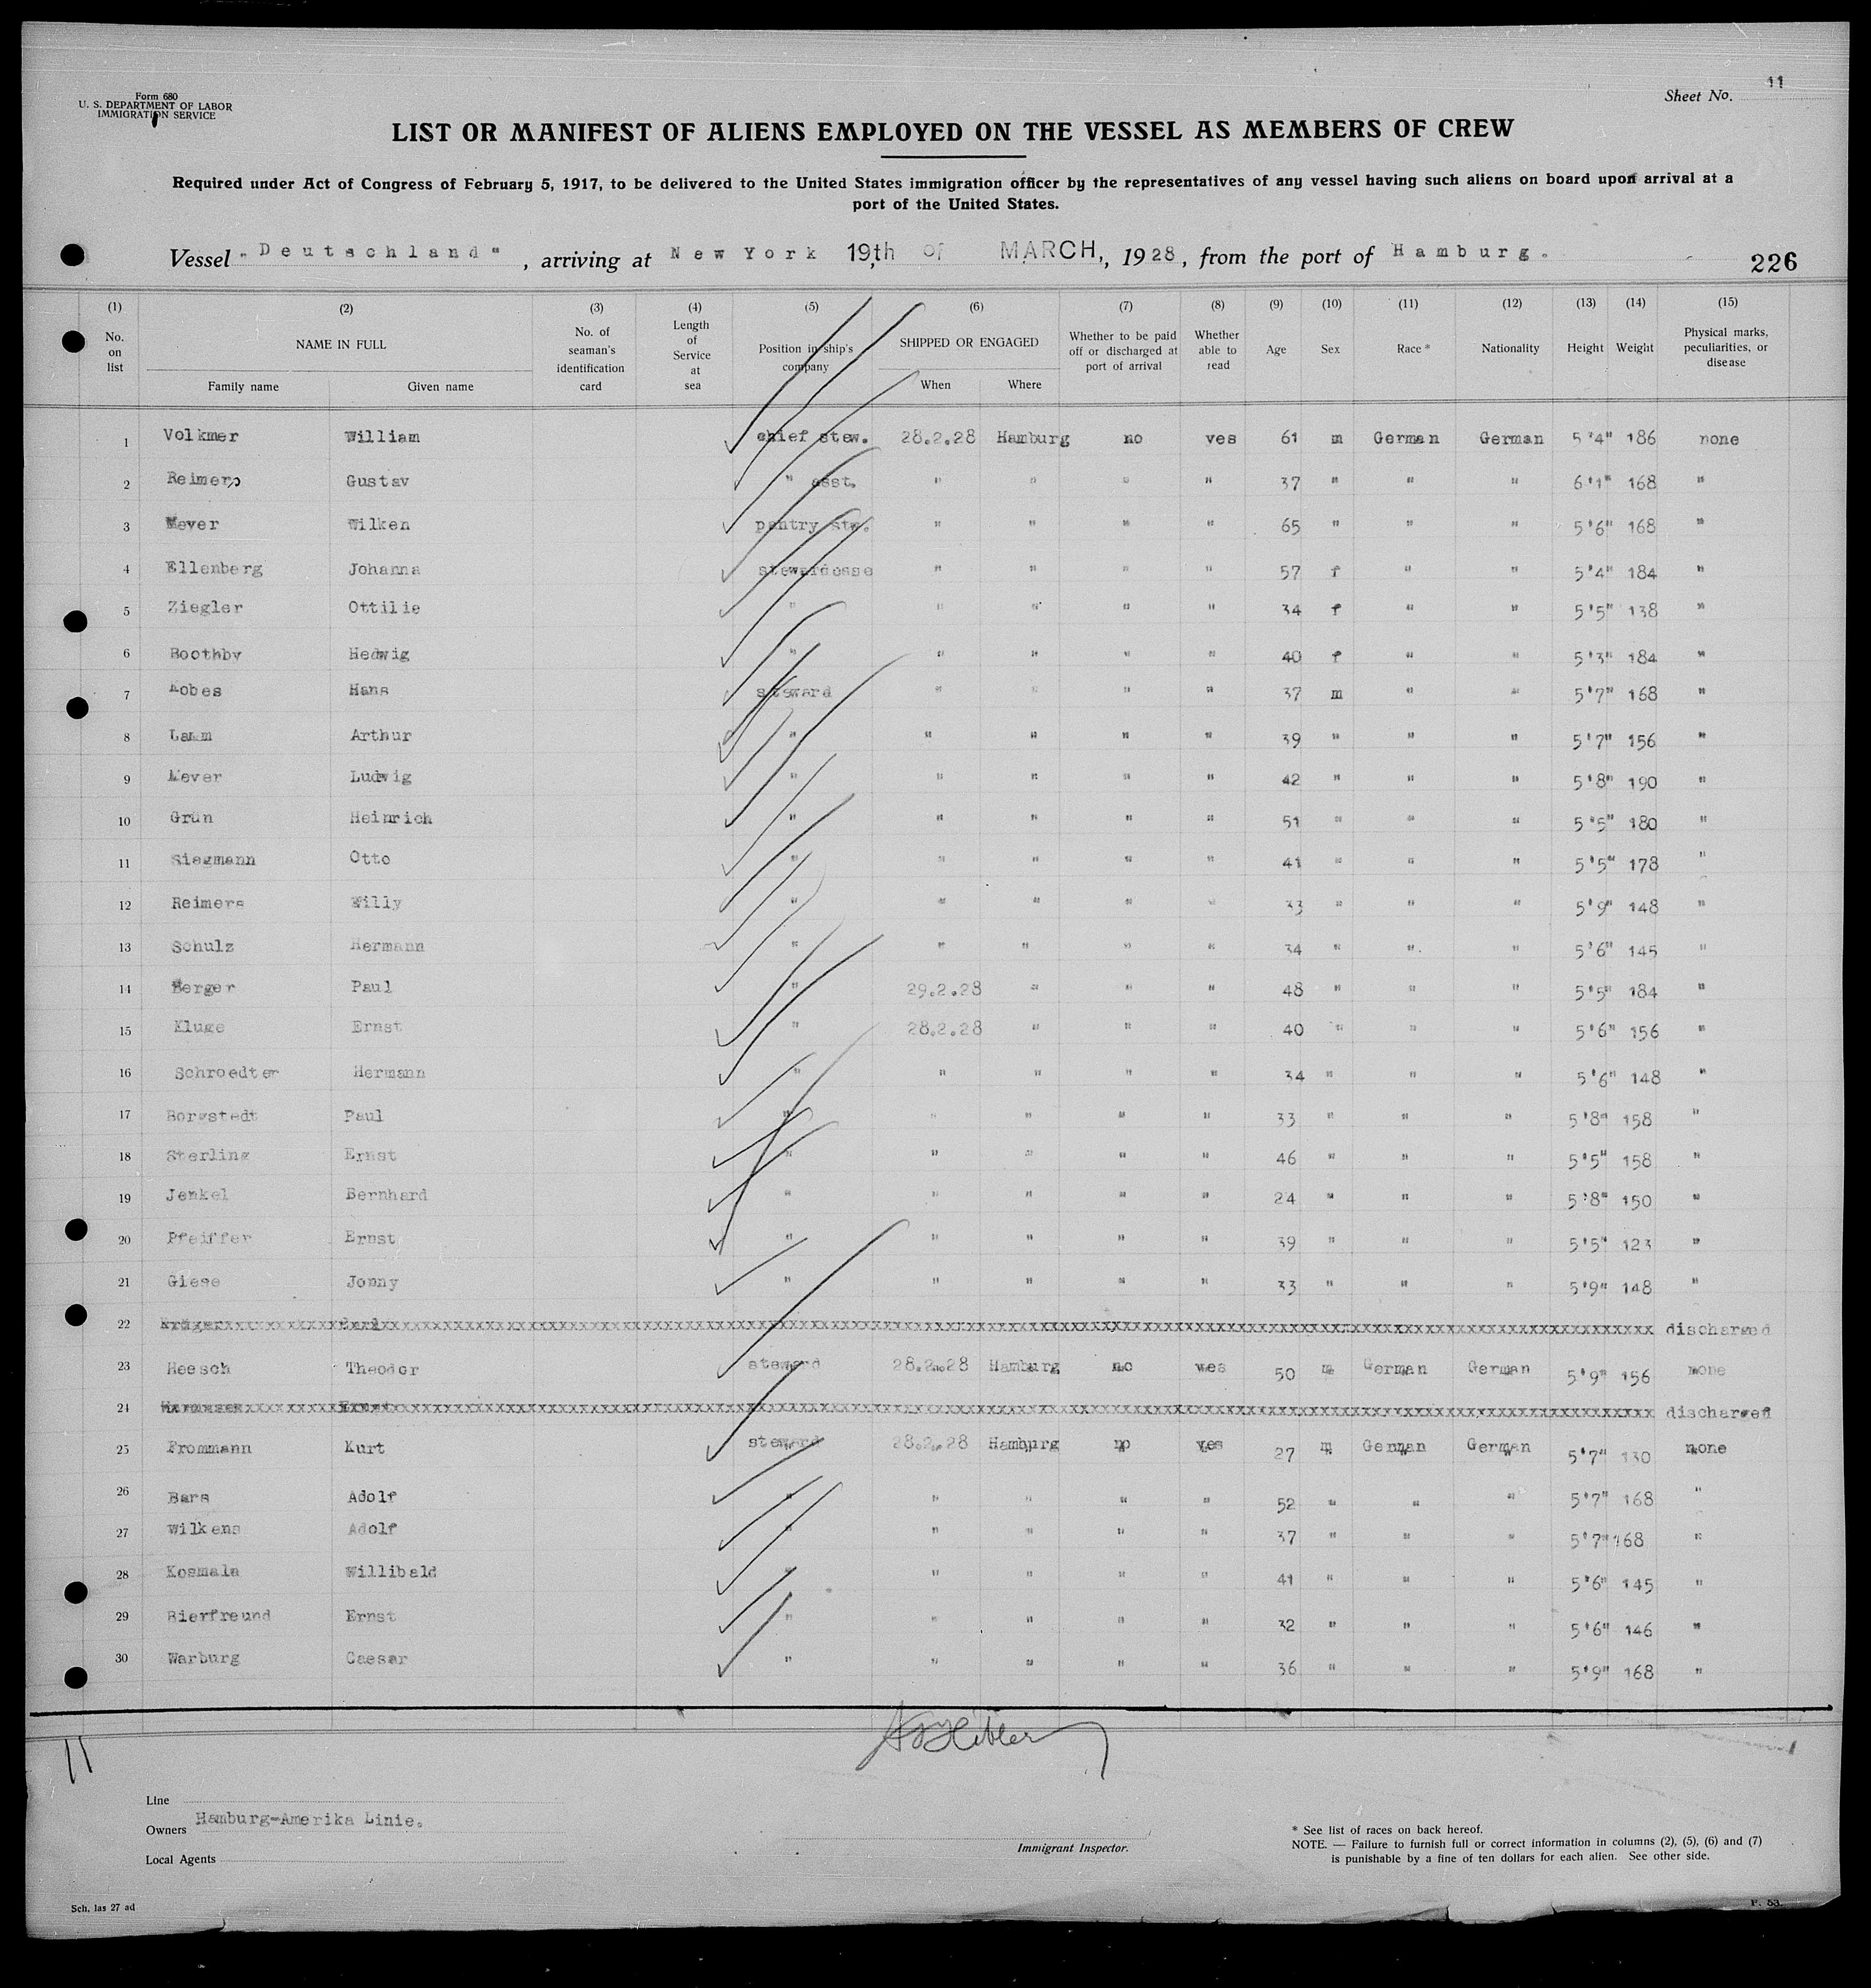 Form 680
U. S. DEPARTMENT OF LABOR
IMMIGRATION SERVICE
Sheet No. 11
LIST OR MANIFEST OF ALIENS EMPLOYED ON THE VESSEL AS MEMBERS OF CREW
Required under Act of Congress of February 5, 1917, to be delivered to the United States immigration officer by the representatives of any vessel having such aliens on board upon arrival at a
port of the United States.
Vessel "Deutschland", arriving at New York 19th of MARCH, 1928, from the port of Hamburg.
226
(1) (2) (3) (4) (5) (6) (7) (8) (9) (10) (11) (12) (13) (14) (15)
No. on list NAME IN FULL No. of seaman's identification card Length of Service at sea Position in ship's company SHIPPED OR ENGAGED Whether to be paid off or discharged at port of arrival Whether able to read Age Sex Race * Nationality Height Weight Physical marks, peculiarities, or disease
Family name Given name When Where
1 Volkmer William chief stew. 28.2.28 Hamburg no yes 61 m German German 5'4" 186 none
2 Reimers Gustav " asst. " " " " 37 " " " 6'1" 168 "
3 Meyer Wilken pantry stw. " " " " 65 " " " 5'6" 168 "
4 Ellenberg Johanna stewardesse " " " " 57 f " " 5'4" 184 "
5 Ziegler Ottilie " " " " " 34 f " " 5'5" 138 "
6 Boothby Hedwig " " " " " 40 f " " 5'3" 184 "
7 Kobes Hans steward " " " " 37 m " " 5'7" 168 "
8 Lamm Arthur " " " " " 39 " " " 5'7" 156 "
9 Meyer Ludwig " " " " " 42 " " " 5'8" 190 "
10 Grün Heinrich " " " " " 51 " " " 5'5" 180 "
11 Siegmann Otto " " " " " 41 " " " 5'5" 178 "
12 Reimers Willy " " " " " 33 " " " 5'9" 148 "
13 Schulz Hermann " " " " " 34 " " " 5'6" 145 "
14 Berger Paul " 29.2.28 " " " 48 " " " 5'5" 184 "
15 Kluge Ernst " 28.2.28 " " " 40 " " " 5'6" 156 "
16 Schroedter Hermann " " " " " 34 " " " 5'6" 148 "
17 Borgstedt Paul " " " " " 33 " " " 5'8" 158 "
18 Sterling Ernst " " " " " 46 " " " 5'5" 158 "
19 Jenkel Bernhard " " " " " 24 " " " 5'8" 150 "
20 Pfeiffer Ernst " " " " " 39 " " " 5'5" 123 "
21 Giese Jonny " " " " " 33 " " " 5'9" 148 "
22 Krüger Carl discharged
23 Heesch Theodor steward 28.2.28 Hamburg no yes 50 m German German 5'9" 156 none
24 Ernst discharged
25 Frommann Kurt steward 28.2.28 Hamburg no yes 27 m German German 5'7" 130 none
26 Bars Adolf " " " " " 52 " " " 5'7" 168 "
27 Wilkens Adolf " " " " " 37 " " " 5'7" 168 "
28 Kosmala Willibald " " " " " 41 " " " 5'6" 145 "
29 Bierfreund Ernst " " " " " 32 " " " 5'6" 146 "
30 Warburg Caesar " " " " " 36 " " " 5'9" 168 "
11
Line
Owners Hamburg-Amerika Linie.
Local Agents
Immigrant Inspector.
* See list of races on back hereof.
NOTE. — Failure to furnish full or correct information in columns (2), (5), (6) and (7)
is punishable by a fine of ten dollars for each alien. See other side.
Sch. las 27 ad
F. 53.